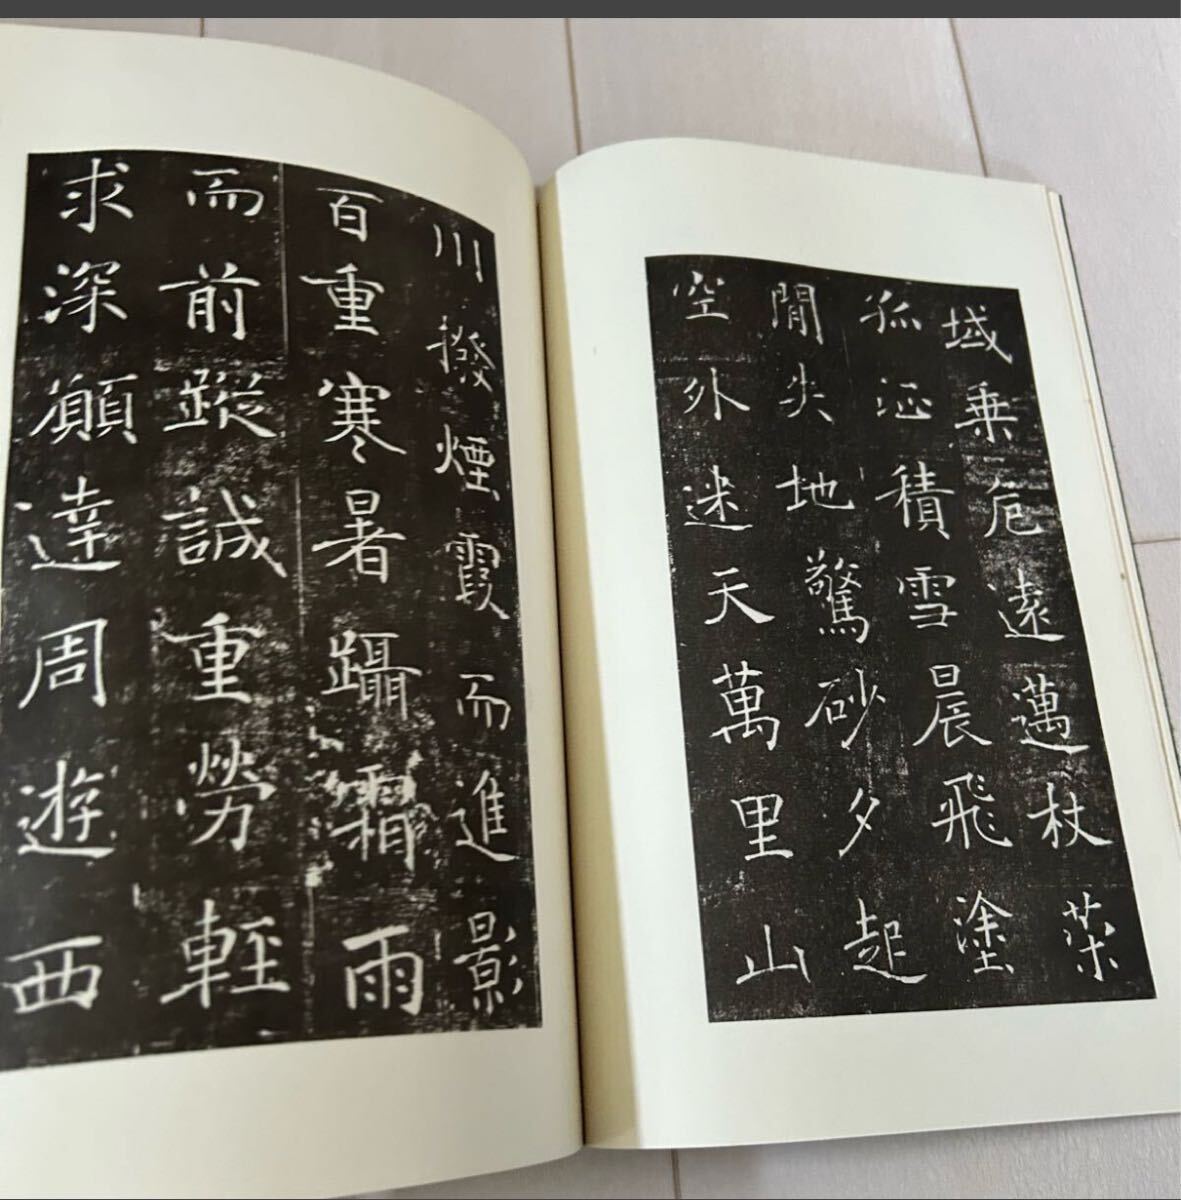 域乗危遠邁杖䇿
孤征積雪晨飛塗
間失地驚砂夕起
空外迷天萬里山
川撥煙霞而進影
百重寒暑躡霜雨
而前蹤誠重勞輕
求深願達周遊西